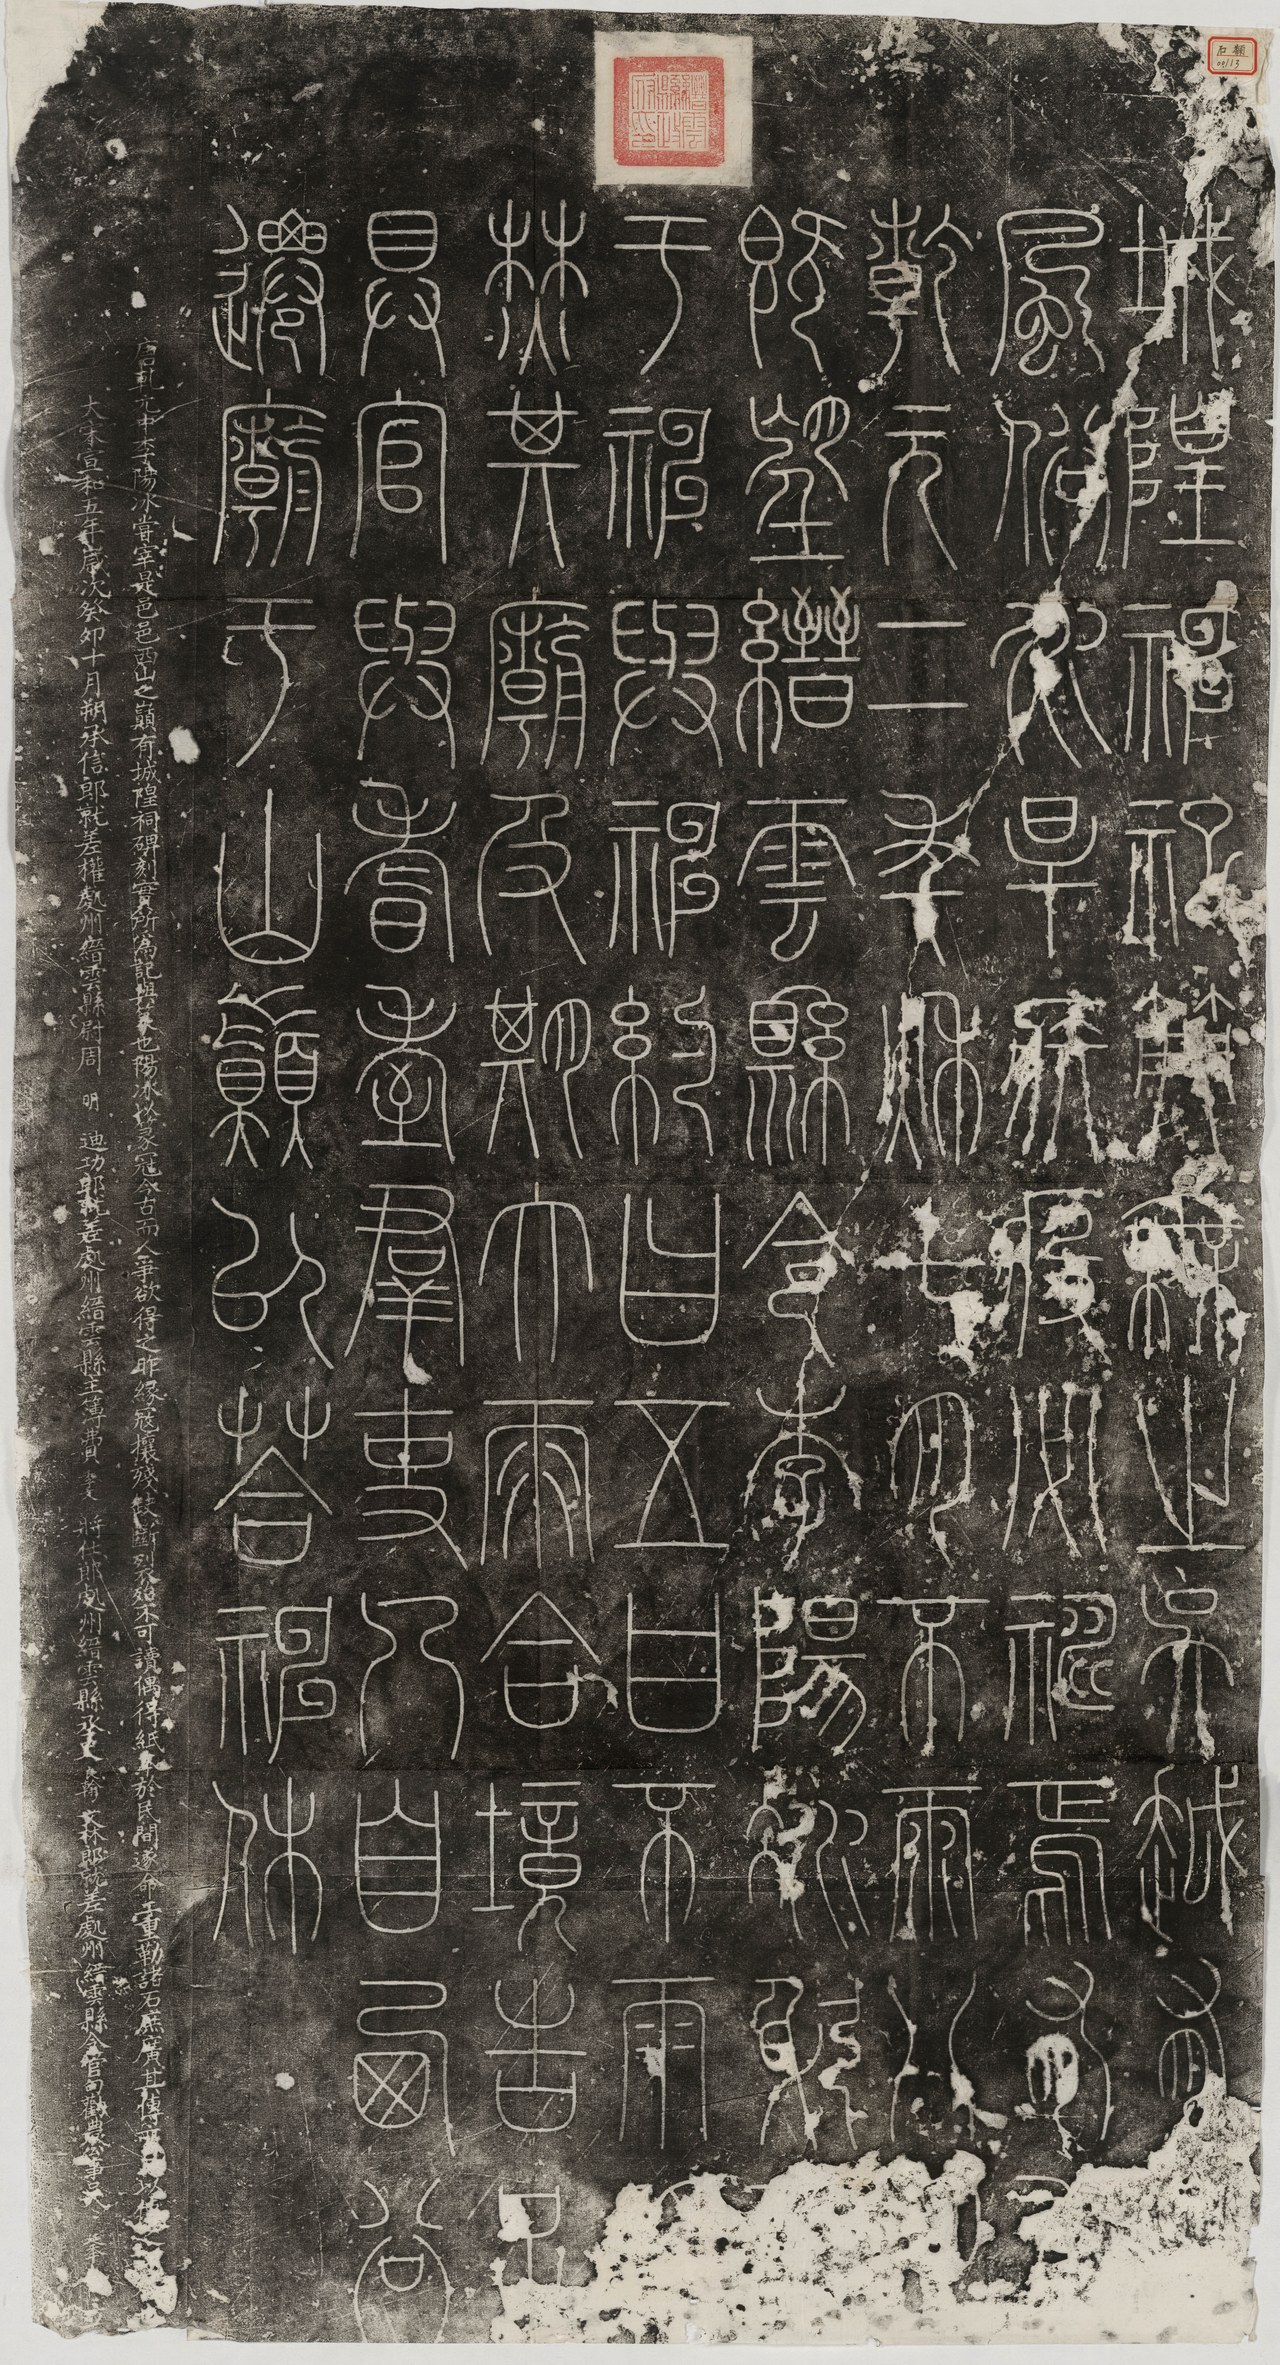 城隍神祀典無之吳越有
風俗水旱疾疫必禱焉有
乾元二年秋七月不雨八
既望縉雲縣令李陽冰躬
于神與神約曰五日不雨
焚其廟及期大雨合境告足
具官與耆耋群吏乃自西谷
遷廟于山巔以答神休
唐乾元中李陽冰嘗宰是邑邑西山之巔有城隍祠碑刻實所為記與篆也陽冰以篆冠今古而人爭欲得之昨緣寇攘殘缺斷裂殆不可讀偶得紙本於民間遂命工重勒諸石庶廣其傳
大宋宣和五年歲次癸卯十月朔承信郎就差權處州縉雲縣尉周 明 迪功郎就差處州縉雲縣主簿費 將仕郎處州縉雲縣丞史 翰 文林郎就差處州縉雲縣令管勾勸農公事吳
縉雲縣政府印
石類